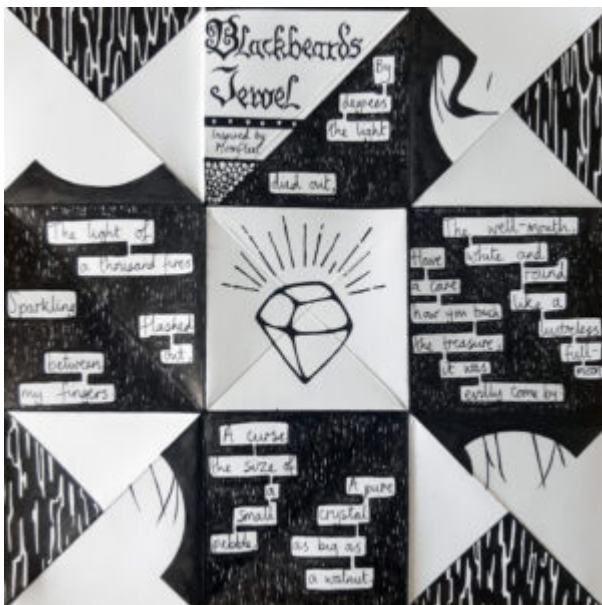 Blackbeards
Jewel
Inspired by
Moonfleet
By
degrees
the light
died out.
The light of
a thousand fires
Sparkline
flashed
out.
between
my fingers
The well-mouth.
white and
round
like a
lustreless
full-
moon
Have
a care
how you touch
the treasure.
it was
evilly come by.
A curse
the size of
a
small
pebble
A pure
crystal
as big as
a walnut.